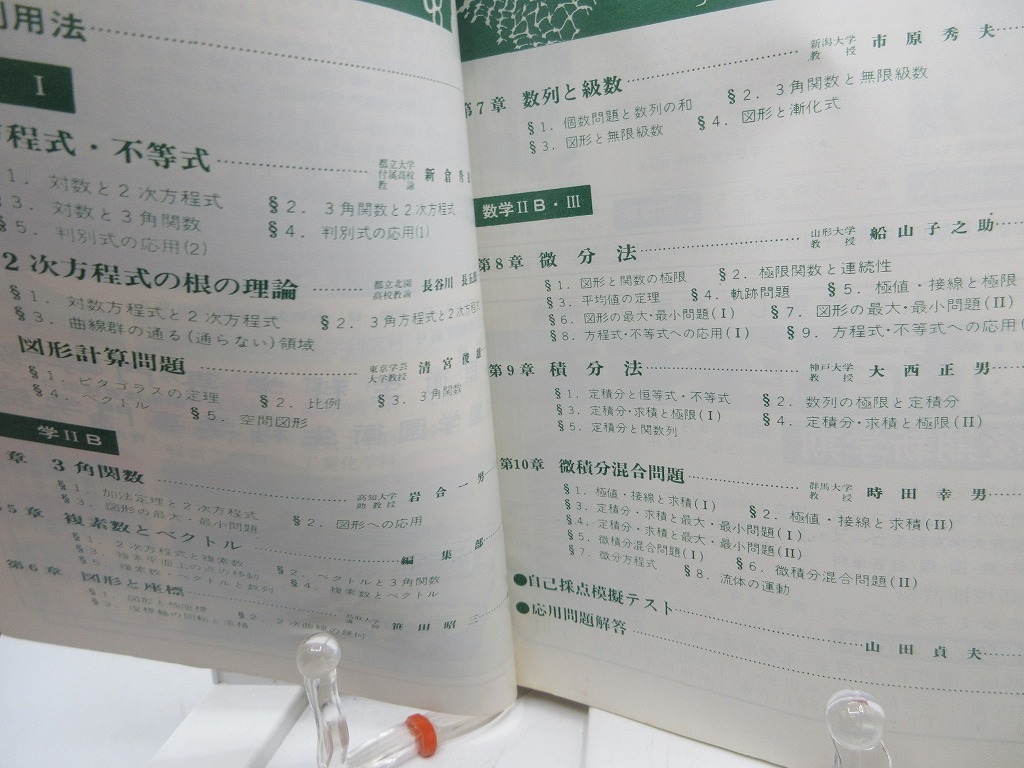 利用法
I
方程式・不等式
都立大学付属高校教諭 新倉秀
1. 対数と2次方程式 §2. 3角関数と2次方程式
3. 対数と3角関数 §4. 判別式の応用(1)
§5. 判別式の応用(2)
2次方程式の根の理論
都立北園高校教諭 長谷川
§1. 対数方程式と2次方程式 §2. 3角方程式と2次方程式
§3. 曲線群の通る(通らない)領域
図形計算問題
東京学芸大学教授 清宮俊雄
§1. ピタゴラスの定理 §2. 比例 §3. 3角関数
§4. ベクトル §5. 空間図形
学ⅡB
章 3角関数
高知大学助教授 岩合一男
§1. 加法定理と2次方程式 §2. 図形への応用
§3. 図形の最大・最小問題
5章 複素数とベクトル
編集部
§1. 2次方程式と複素数 §2. ベクトルと3角関数
§3. 複素平面上の点の移動 §4. 複素数とベクトル
§5. 複素数・ベクトルと数列
第6章 図形と座標
鳥取大学 笹田昭三
§1. 図形と極座標 §2. 2次曲線の幾何
§3. 座標軸の回転と求積
第7章 数列と級数
新潟大学教授 市原秀夫
§1. 個数問題と数列の和 §2. 3角関数と無限級数
§3. 図形と無限級数 §4. 図形と漸化式
数学ⅡB・Ⅲ
第8章 微分法
山形大学教授 船山子之助
§1. 図形と関数の極限 §2. 極限関数と連続性
§3. 平均値の定理 §4. 軌跡問題 §5. 極値・接線と極限
§6. 図形の最大・最小問題(Ⅰ) §7. 図形の最大・最小問題(Ⅱ)
§8. 方程式・不等式への応用(Ⅰ) §9. 方程式・不等式への応用(
第9章 積分法
神戸大学教授 大西正男
§1. 定積分と恒等式・不等式 §2. 数列の極限と定積分
§3. 定積分・求積と極限(Ⅰ) §4. 定積分・求積と極限(Ⅱ)
§5. 定積分と関数列
第10章 微積分混合問題
群馬大学教授 時田幸男
§1. 極値・接線と求積(Ⅰ) §2. 極値・接線と求積(Ⅱ)
§3. 定積分・求積と最大・最小問題(Ⅰ)
§4. 定積分・求積と最大・最小問題(Ⅱ)
§5. 微積分混合問題(Ⅰ) §6. 微積分混合問題(Ⅱ)
§7. 微分方程式 §8. 流体の運動
●自己採点模擬テスト
●応用問題解答
山田貞夫